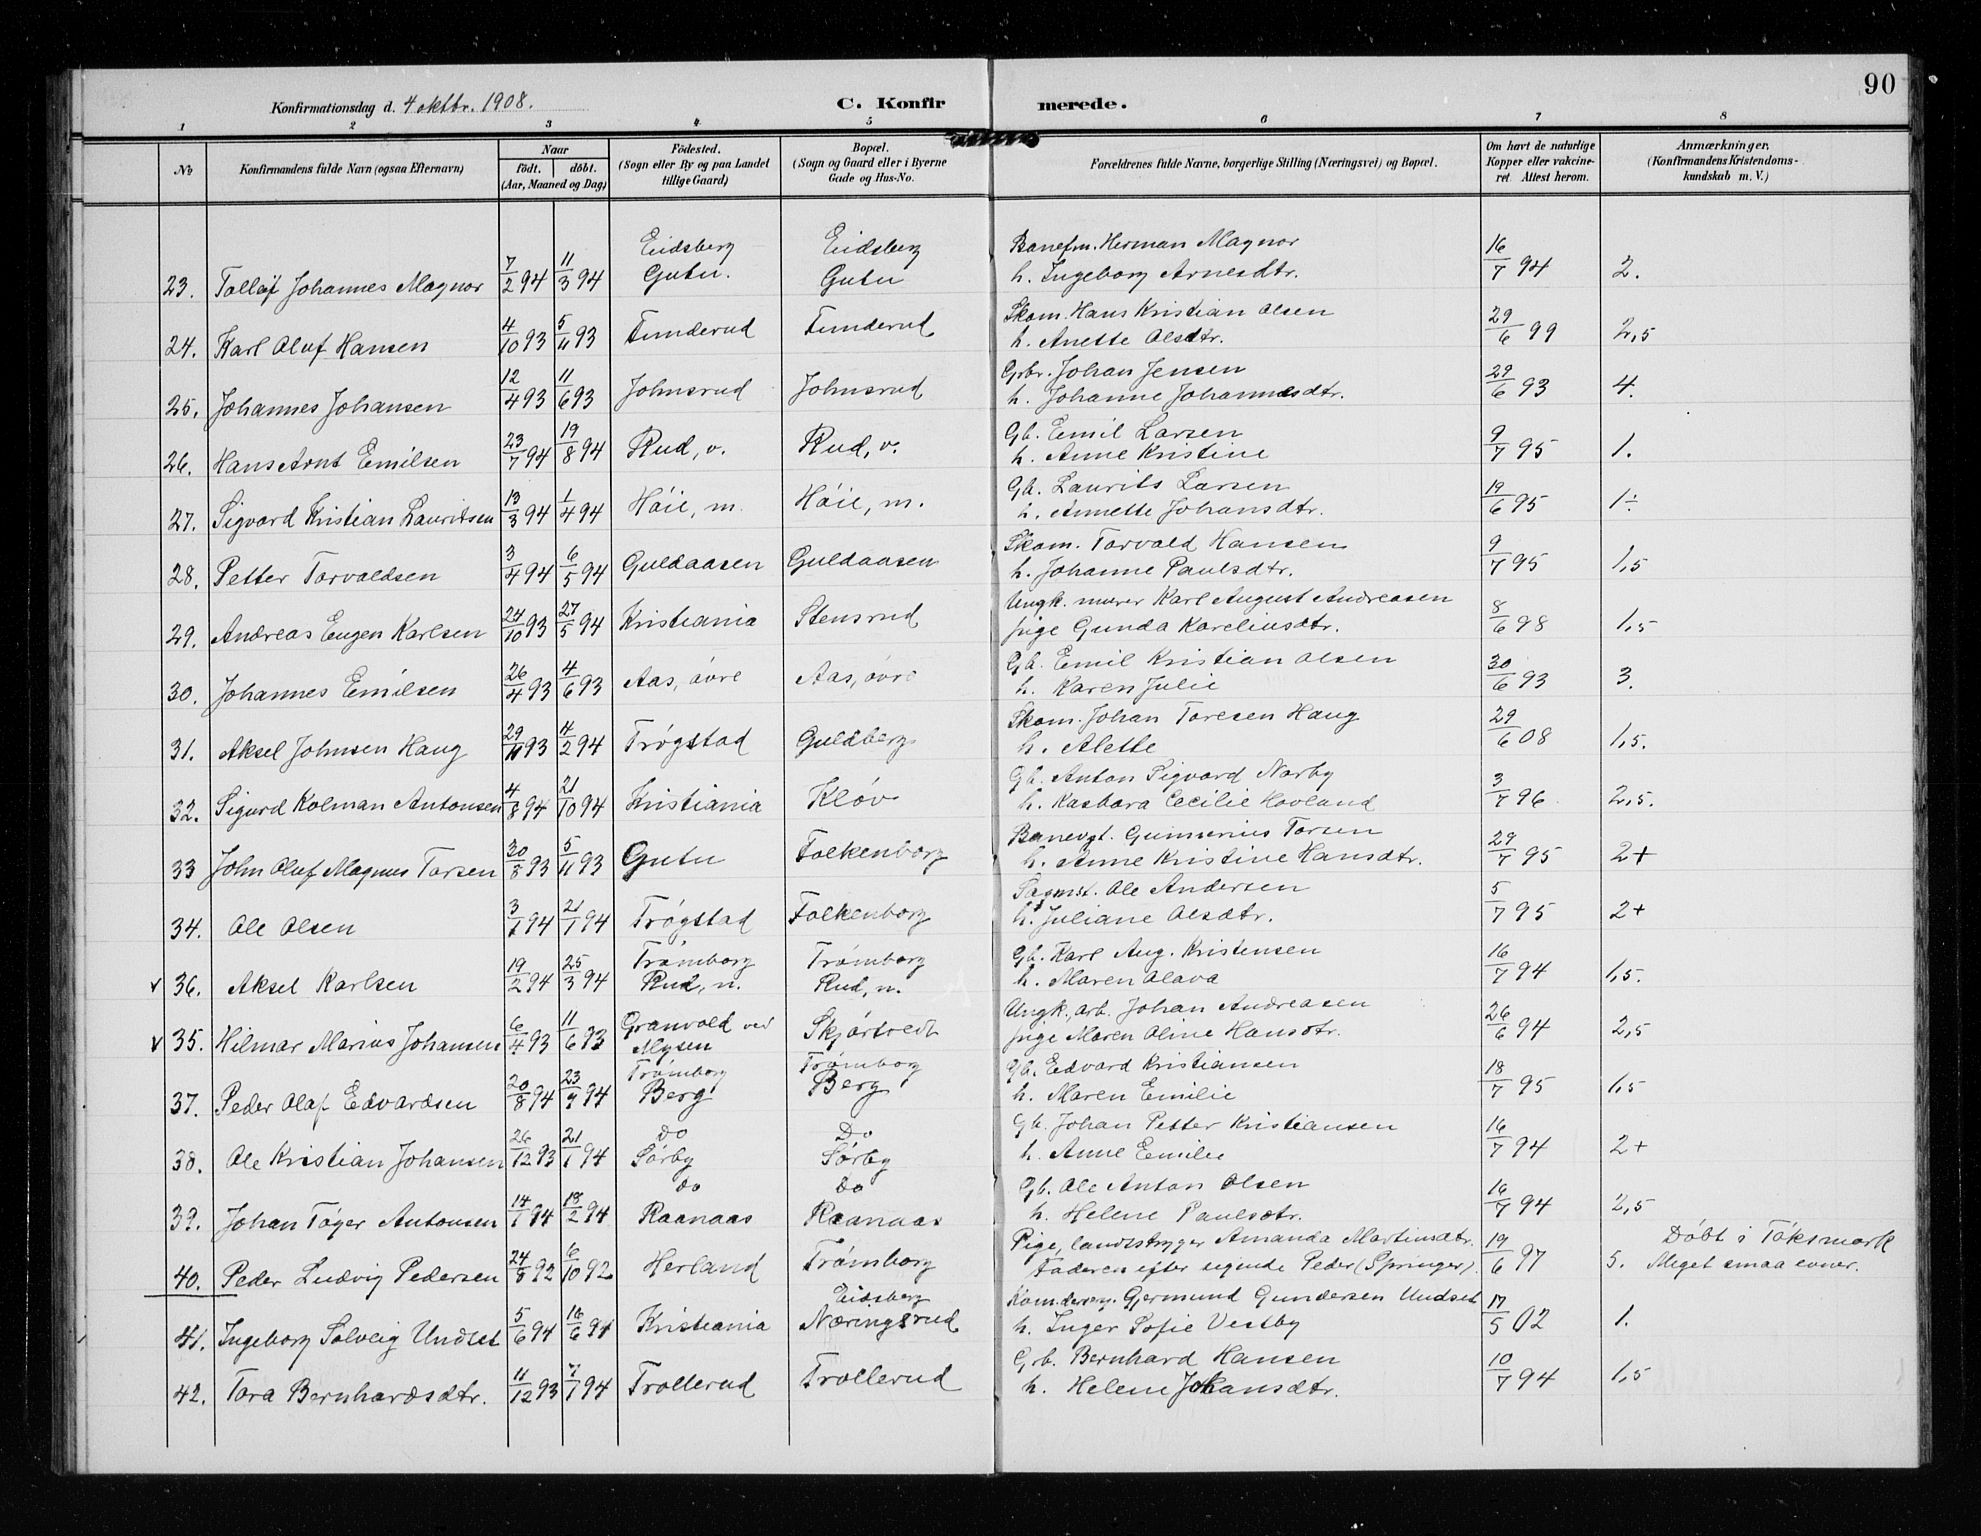 90
Konfirmationsdag d. 4 oktbr. 1908. C. Konfirmerede.
1 2 3 4 5 6 7 8
No Konfirmandens fulde Navn (ogsaa Efternavn) Naar født. døbt. (Aar, Maaned og Dag) Fødested. (Sogn eller By og paa Landet tillige Gaard) Bopæl. (Sogn og Gaard eller i Byerne Gade og Hus-No. Forældrenes fulde Navne, borgerlige Stilling (Næringsvei) og Bopæl. Om havt de naturlige Kopper eller vakcineret. Attest herom. Anmærkninger. (Konfirmandens Kristendomskundskab m. V.)
Eidsberg Eidsberg Banefm. Herman Magnor
23. Tollöf Johannes Magnor 7/2 94 11/3 94 Gutu. Gutu h. Ingeborg Arnesdtr. 16/7 94 2.
Skom. Hans Kristian Olsen
24. Karl Oluf Hansen 4/10 93 5/11 93 Tunderud Tunderud h. Anette Olsdtr. 29/6 99 2,5
Grbr. Johan Jensen
25. Johannes Johansen 12/4 93 11/6 93 Johnsrud Johnsrud h. Johanne Johannesdtr. 29/6 93 4.
Gb. Emil Larsen
26. Hans Arnt Emilsen 23/7 94 19/8 94 Rud, v. Rud, v. h. Anne Kristine 9/7 95 1.
Gb. Laurits Larsen
27. Sigvard Kristian Lauritsen 13/3 94 1/4 94 Høie, m. Høie, m. h. Annette Johansdtr. 19/6 95 1÷
Skom. Torvald Hansen
28. Petter Torvaldsen 3/4 94 6/5 94 Guldaasen Guldaasen h. Johanne Paulsdtr. 9/7 95 1,5
Ungk. murer Karl August Andreasen
29. Andreas Eugen Karlsen 24/10 93 27/5 94 Kristiania Stensrud pige Gunda Kareliusdtr. 8/6 98 1,5
Gb. Emil Kristian Olsen
30. Johannes Emilsen 26/4 93 4/6 93 Aas, øvre Aas, øvre h. Karen Julie 30/6 93 3.
Skom. Johan Toresen Haug
31. Aksel Johnsen Haug 29/11 93 4/2 94 Trøgstad Guldberg h. Alette 29/6 08 1,5.
Gb. Anton Sigvard Narby
32. Sigurd Kolman Antonsen 4/8 94 21/10 94 Kristiania Kløv h. Kasbara Cecilie Hovland 3/7 96 2,5.
Banevgt. Gunnerius Torsen
33 John Oluf Magnus Torsen 30/8 93 5/11 93 Gutu Folkenborg h. Anne Kristine Hansdtr. 29/7 95 2+
Sagmst. Ole Andersen
34. Ole Olsen 3/1 94 21/1 94 Trøgstad Folkenborg h. Juliane Olsdtr. 5/7 95 2+
Trømborg Trømborg Gb. Karl Aug. Kristensen
v 36. Aksel Karlsen 19/2 94 25/3 94 Rud, n. Rud, n. h. Maren Olava 16/7 94 1,5.
Granvold ved Ungk, arb. Johan Andreasen
v 35. Hilmar Marius Johansen 6/4 93 11/6 93 Mysen Skjørtvedt pige Maren Oline Hansdtr. 26/6 94 2,5
Trømborg Trømborg Gb. Edvard Kristiansen
37. Peder Olaf Edvardsen 20/8 94 23/9 94 Berg Berg h. Maren Emilie 18/7 95 1,5
Do Do Gb. Johan Petter Kristiansen
38. Ole Kristian Johansen 26/12 93 21/1 94 Sørby Sørby h. Anne Emilie 16/7 94 2+
do do Gb. Ole Anton Olsen
39. Johan Tøger Antonsen 14/1 94 18/2 94 Raanaas Raanaas h. Helene Paulsdtr. 16/7 94 2,5
Pige, landstryger Amanda Martinsdtr. Døbt i Töksmark
40. Peder Ludvig Pedersen 24/8 92 6/10 92 Herland Trømborg Faderen efter sigende Peder (Springer). 19/6 97 5. Meget smaa evner.
Eidsberg Komdersrg. Gjermund Gundersen Undset
41. Ingeborg Solveig Undset 5/6 94 16/6 94 Kristiania Næringsrud h. Inger Sofie Vestby 17/5 02 1.
Grb. Bernhard Hansen
42. Tora Bernhardsdtr. 11/12 93 7/1 94 Trollerud Trollerud h. Helene Johansdtr. 10/7 94 1,5